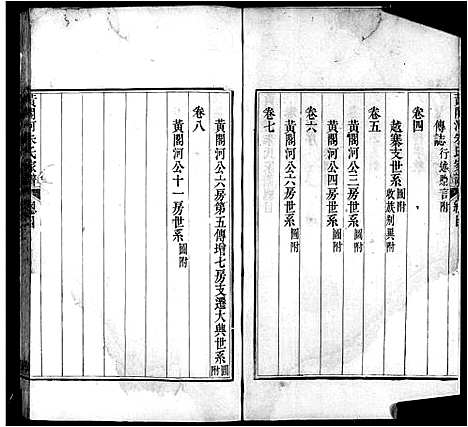 傳誌行述贈言附
卷四
越寨支世系圖附
收族别異附
卷五
黃閣河公三房世系圖附
黃閣河公四房世系圖附
卷六
黃閣河公六房世系圖附
卷七
黃閣河公六房第五傳增七房支遷大興世系圖附
卷八
黃閣河公十一房世系圖附
黃閣河朱氏家譜 總目